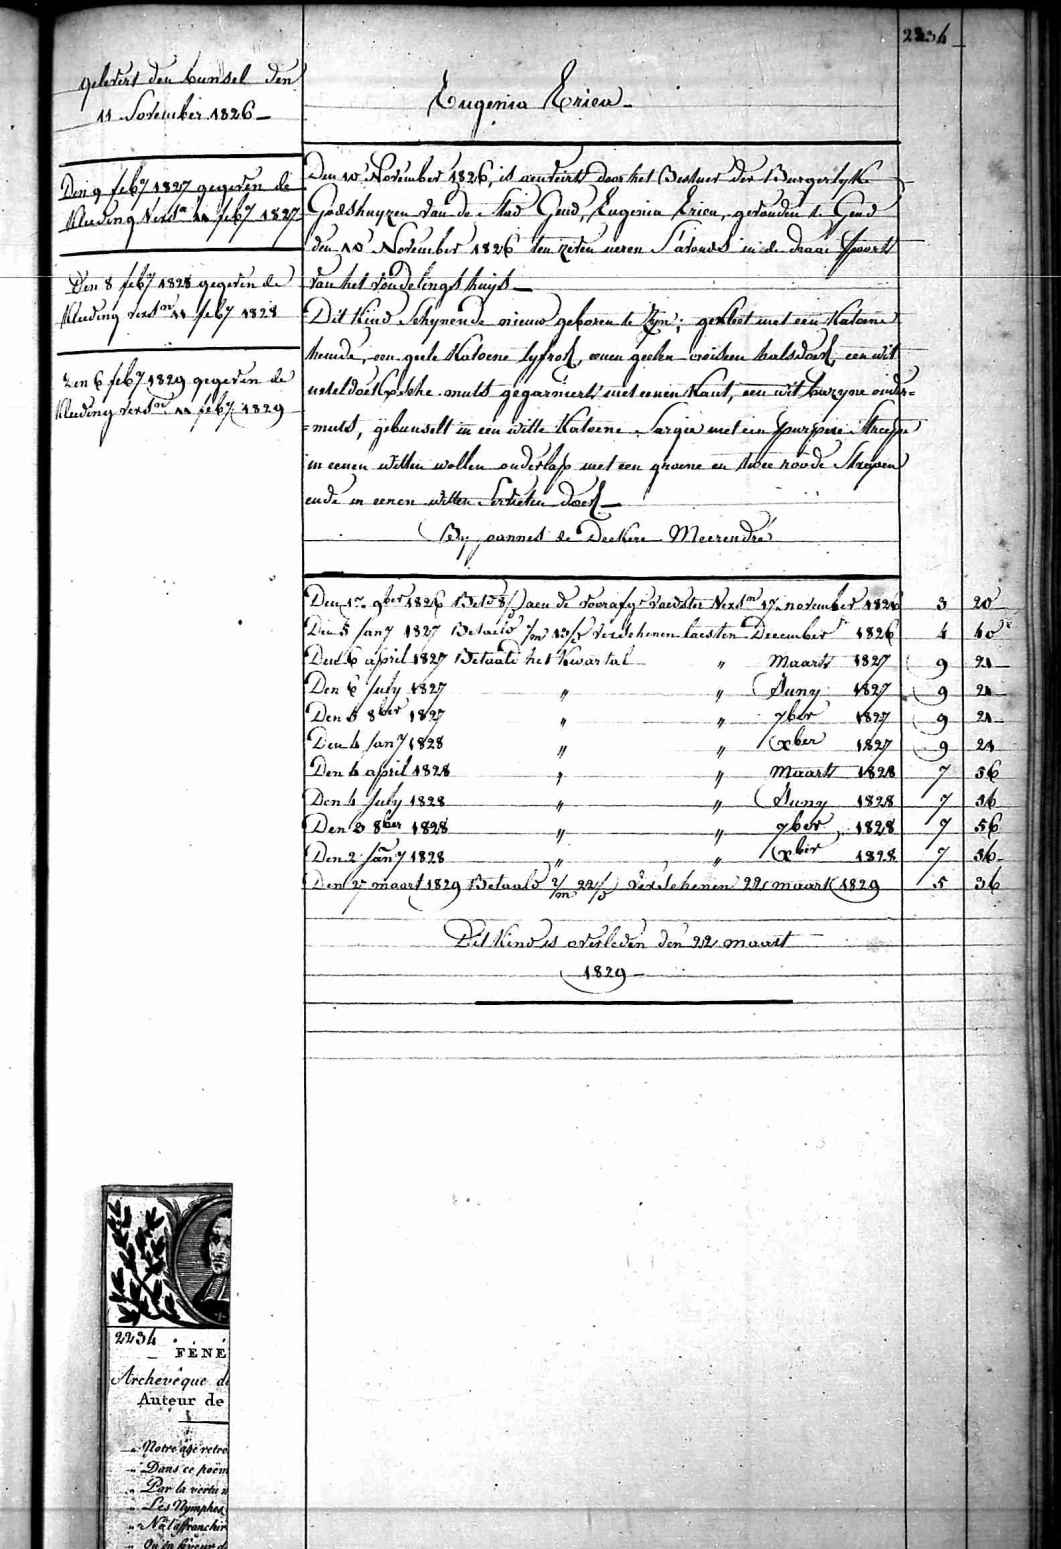 2234
gelevert den bunsel den
11 November 1826
Eugenia Erica
Den 9 feb^y 1827 gegeven de
Kleeding vers^n 11 feb^y 1827
Den 8 feb^y 1828 gegeven de
Kleeding vers^n 11 feb^y 1828
Den 6 feb^y 1829 gegeven de
Kleeding vers^n 11 feb^y 1829
Den 10 November 1826, is aenveirt door het Bestuer der Burgerlyke
Godshuyzen van de Stad Gend, Eugenia Erica, gevonden te Gend
den 10 November 1826 ten zeven ueren S'avonds in de draai Poorte
van het vondelings huijs
Dit Kind Schynende nieuw geboren te Zyn; gekleet met een Katoene
hemde, een geele Katoene lyfrok, eenen geelen halsdoek, een wit
neteldoeksche muts gegarniert met eenen Kant, een wit onder=
=muts, gebunselt in een witte Katoene Sargie met een purpere Streepe
in eenen witten wollen onderlap met een groene en twee roode Strepen
ende in eenen witten Servieten doek
By Joannes de Deckere Meerendré
Den 1^n 9ber 1826 Bet^d 8/ aen de voorafg^e voedster Vers^n 17 november 1826 3 20
Den 5 Jan^y 1827 Betaeld 1/m 13/ verschenen laesten December 1826 4 40
Den 6 april 1827 Betaald het Kwartal " Maart 1827 9 21
Den 6 July 1827 " " Juny 1827 9 21
Den 5 8ber 1827 " " 7ber 1827 9 21
Den 4 Jan^y 1828 " " Xber 1827 9 21
Den 4 april 1828 " " Maart 1828 7 56
Den 4 July 1828 " " Juny 1828 7 56
Den 3 8ber 1828 " " 7ber 1828 7 56
Den 2 Jan^y 1828 " " Xber 1828 7 56
Den 27 maart 1829 Betaald 2/m 22/ verschenen 22 maart 1829 5 36
Dit Kind is overleden den 22 maart
1829
2234
FÉNÉ
Archevêque d
Auteur de
Notre age retro
Dans ce poëm
Par la vertu
Les Nymphes
N'a l'affranchir